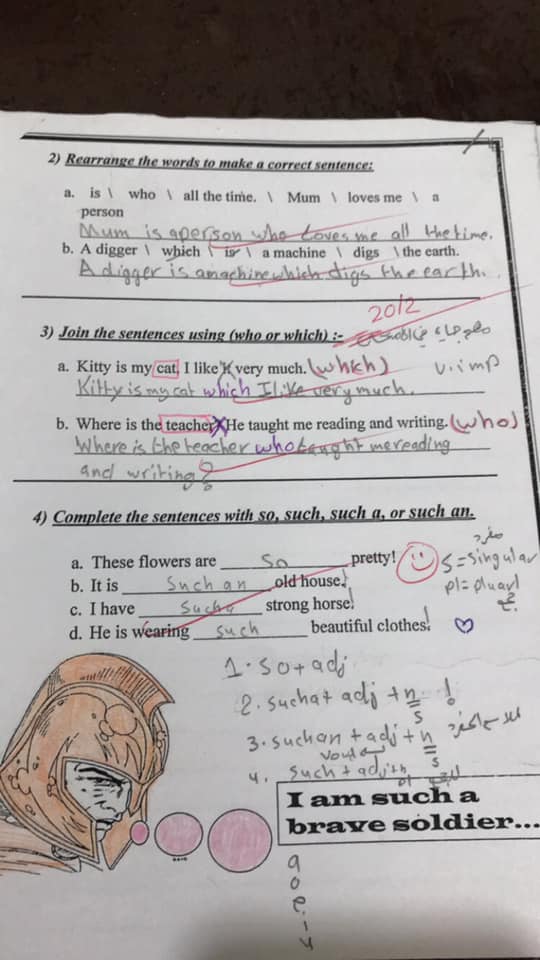 2) Rearrange the words to make a correct sentence:
a. is \ who \ all the time. \ Mum \ loves me \ a
person
Mum is a person who Loves me all the time.
b. A digger \ which \ is \ a machine \ digs \ the earth.
A digger is a machine which digs the earth.
2012
3) Join the sentences using (who or which) :-
a. Kitty is my cat. I like it very much. (which)
V.imp
Kitty is my cat which I like very much.
b. Where is the teacher? He taught me reading and writing. (who)
Where is the teacher who taught me reading
and writing?
4) Complete the sentences with so, such, such a, or such an.
مفرد
a. These flowers are so pretty!
S = singular
b. It is Such an old house!
pl = pluarl
جمع
c. I have Such a strong horse!
d. He is wearing such beautiful clothes!
1. so + adj
2. such a + adj + n !
s
3. such an + adj + n
s
4. such + adj + n
I am such a
brave soldier...
a
o
e
i
u